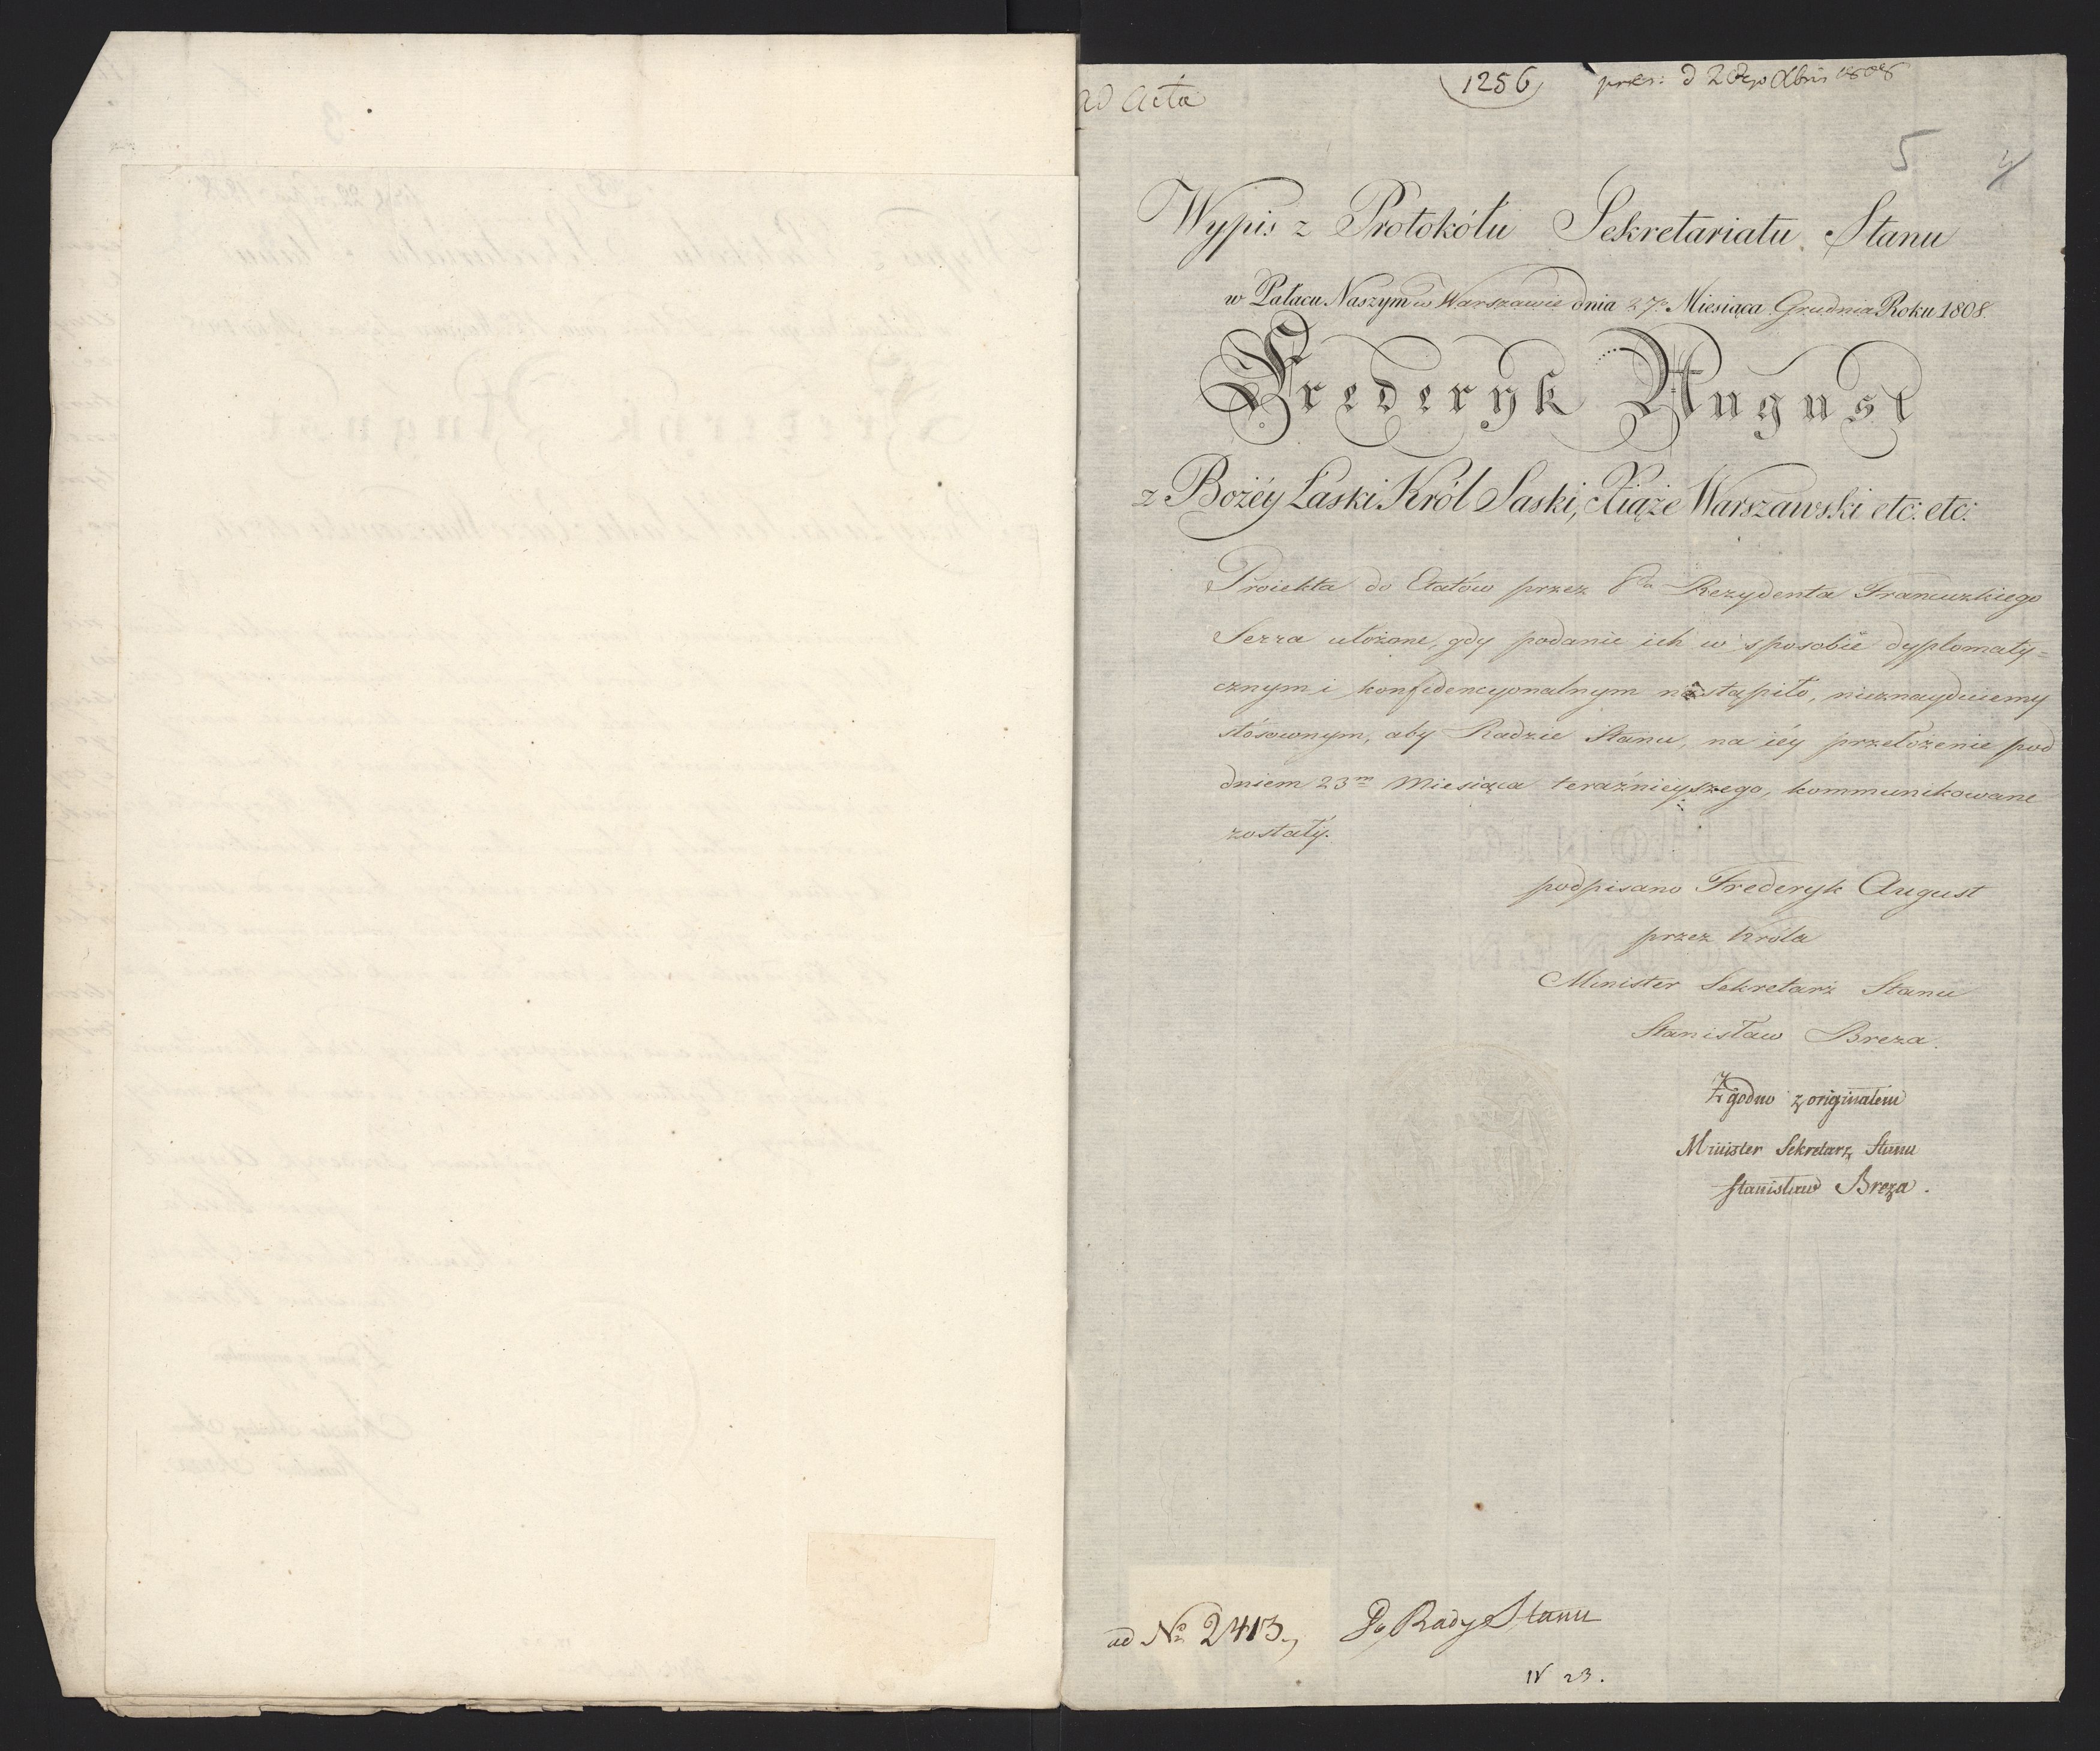 ad Acta
1256
pres: d Xbris 1808
5 4
Wypis z Protokółu Sekretariatu Stanu
w Pałacu Naszym w Warszawie dnia 27. Miesiąca Grudnia Roku 1808.
Frederyk August
z Bożéy Łaski Król Saski, Xiąże Warszawski etc: etc:
Proiekta do Etatów przez Rezydenta Francuzkiego
Serra ułożone, gdy podanie ich w sposobie dyplomaty=
cznym i konfidencyonalnym nastąpiło, nieznayduiemy
stósownym, aby Radzie Stanu, na iéy przełożenie pod
dniem 23m Miesiąca teraźnieyszego, kommunikowane
zostały.
podpisano Frederyk August
przez Króla
Minister Sekretarz Stanu
Stanisław Breza.
Zgodno z originałem
Minister Sekretarz Stanu
Stanisław Breza.
ad No 2413, Do Rady Stanu
IV 23.